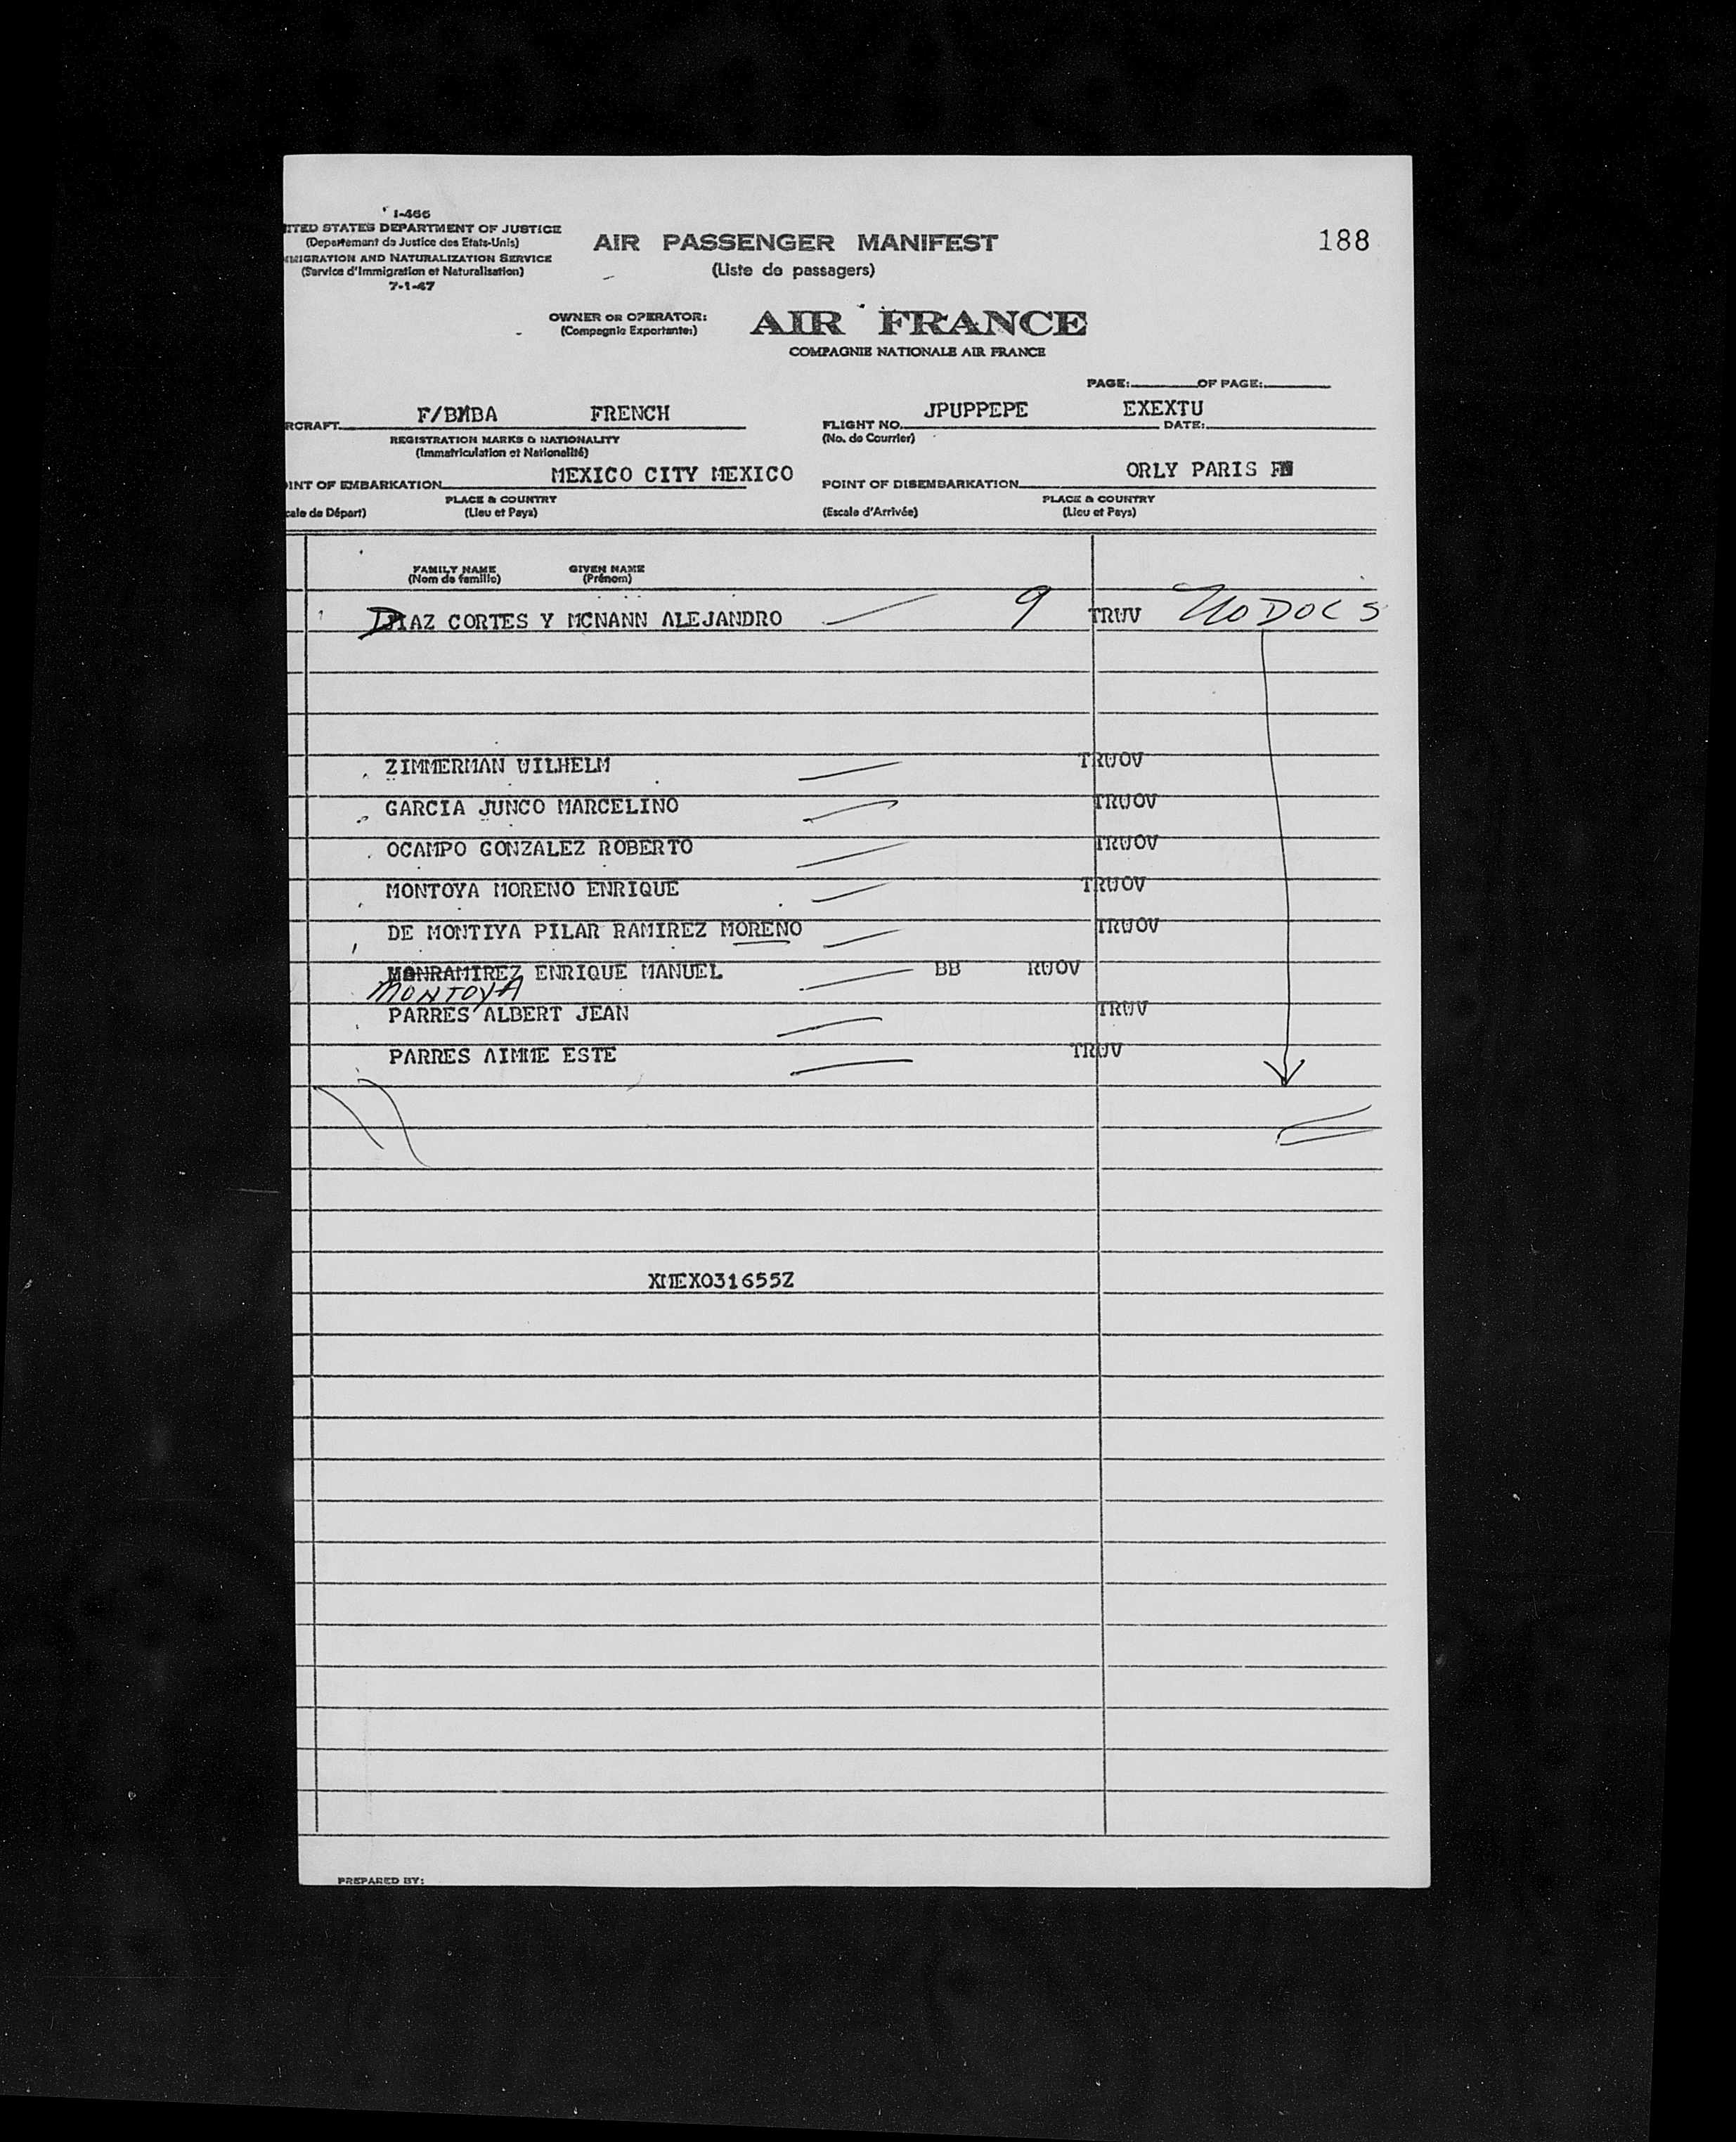 I-466
ITED STATES DEPARTMENT OF JUSTICE
(Departement de Justice des Etats-Unis)
MIGRATION AND NATURALIZATION SERVICE
(Service d'Immigration et Naturalisation)
7-1-47
AIR PASSENGER MANIFEST
(Liste de passagers)
188
OWNER OR OPERATOR:
(Compagnie Exportante:)
AIR FRANCE
COMPAGNIE NATIONALE AIR FRANCE
PAGE: OF PAGE:
RCRAFT F/BMBA FRENCH
REGISTRATION MARKS & NATIONALITY
(Immatriculation et Nationalité)
FLIGHT NO. JPUPPEPE DATE: EXEXTU
(No. de Courrier)
INT OF EMBARKATION MEXICO CITY MEXICO
PLACE & COUNTRY
cale de Départ) (Lieu et Pays)
POINT OF DISEMBARKATION ORLY PARIS
PLACE & COUNTRY
(Escale d'Arrivée) (Lieu et Pays)
FAMILY NAME GIVEN NAME
(Nom de famille) (Prénom)
DIAZ CORTES Y MCNANN ALEJANDRO 9 TRWV NO DOCS
ZIMMERMAN WILHELM TRWOV
GARCIA JUNCO MARCELINO TRWOV
OCAMPO GONZALEZ ROBERTO TRWOV
MONTOYA MORENO ENRIQUE TRWOV
DE MONTIYA PILAR RAMIREZ MORENO TRWOV
MONRAMIREZ ENRIQUE MANUEL BB RWOV
MONTOYA
PARRES ALBERT JEAN TRWV
PARRES AIMME ESTE TRWV
XMEX031655Z
PREPARED BY: